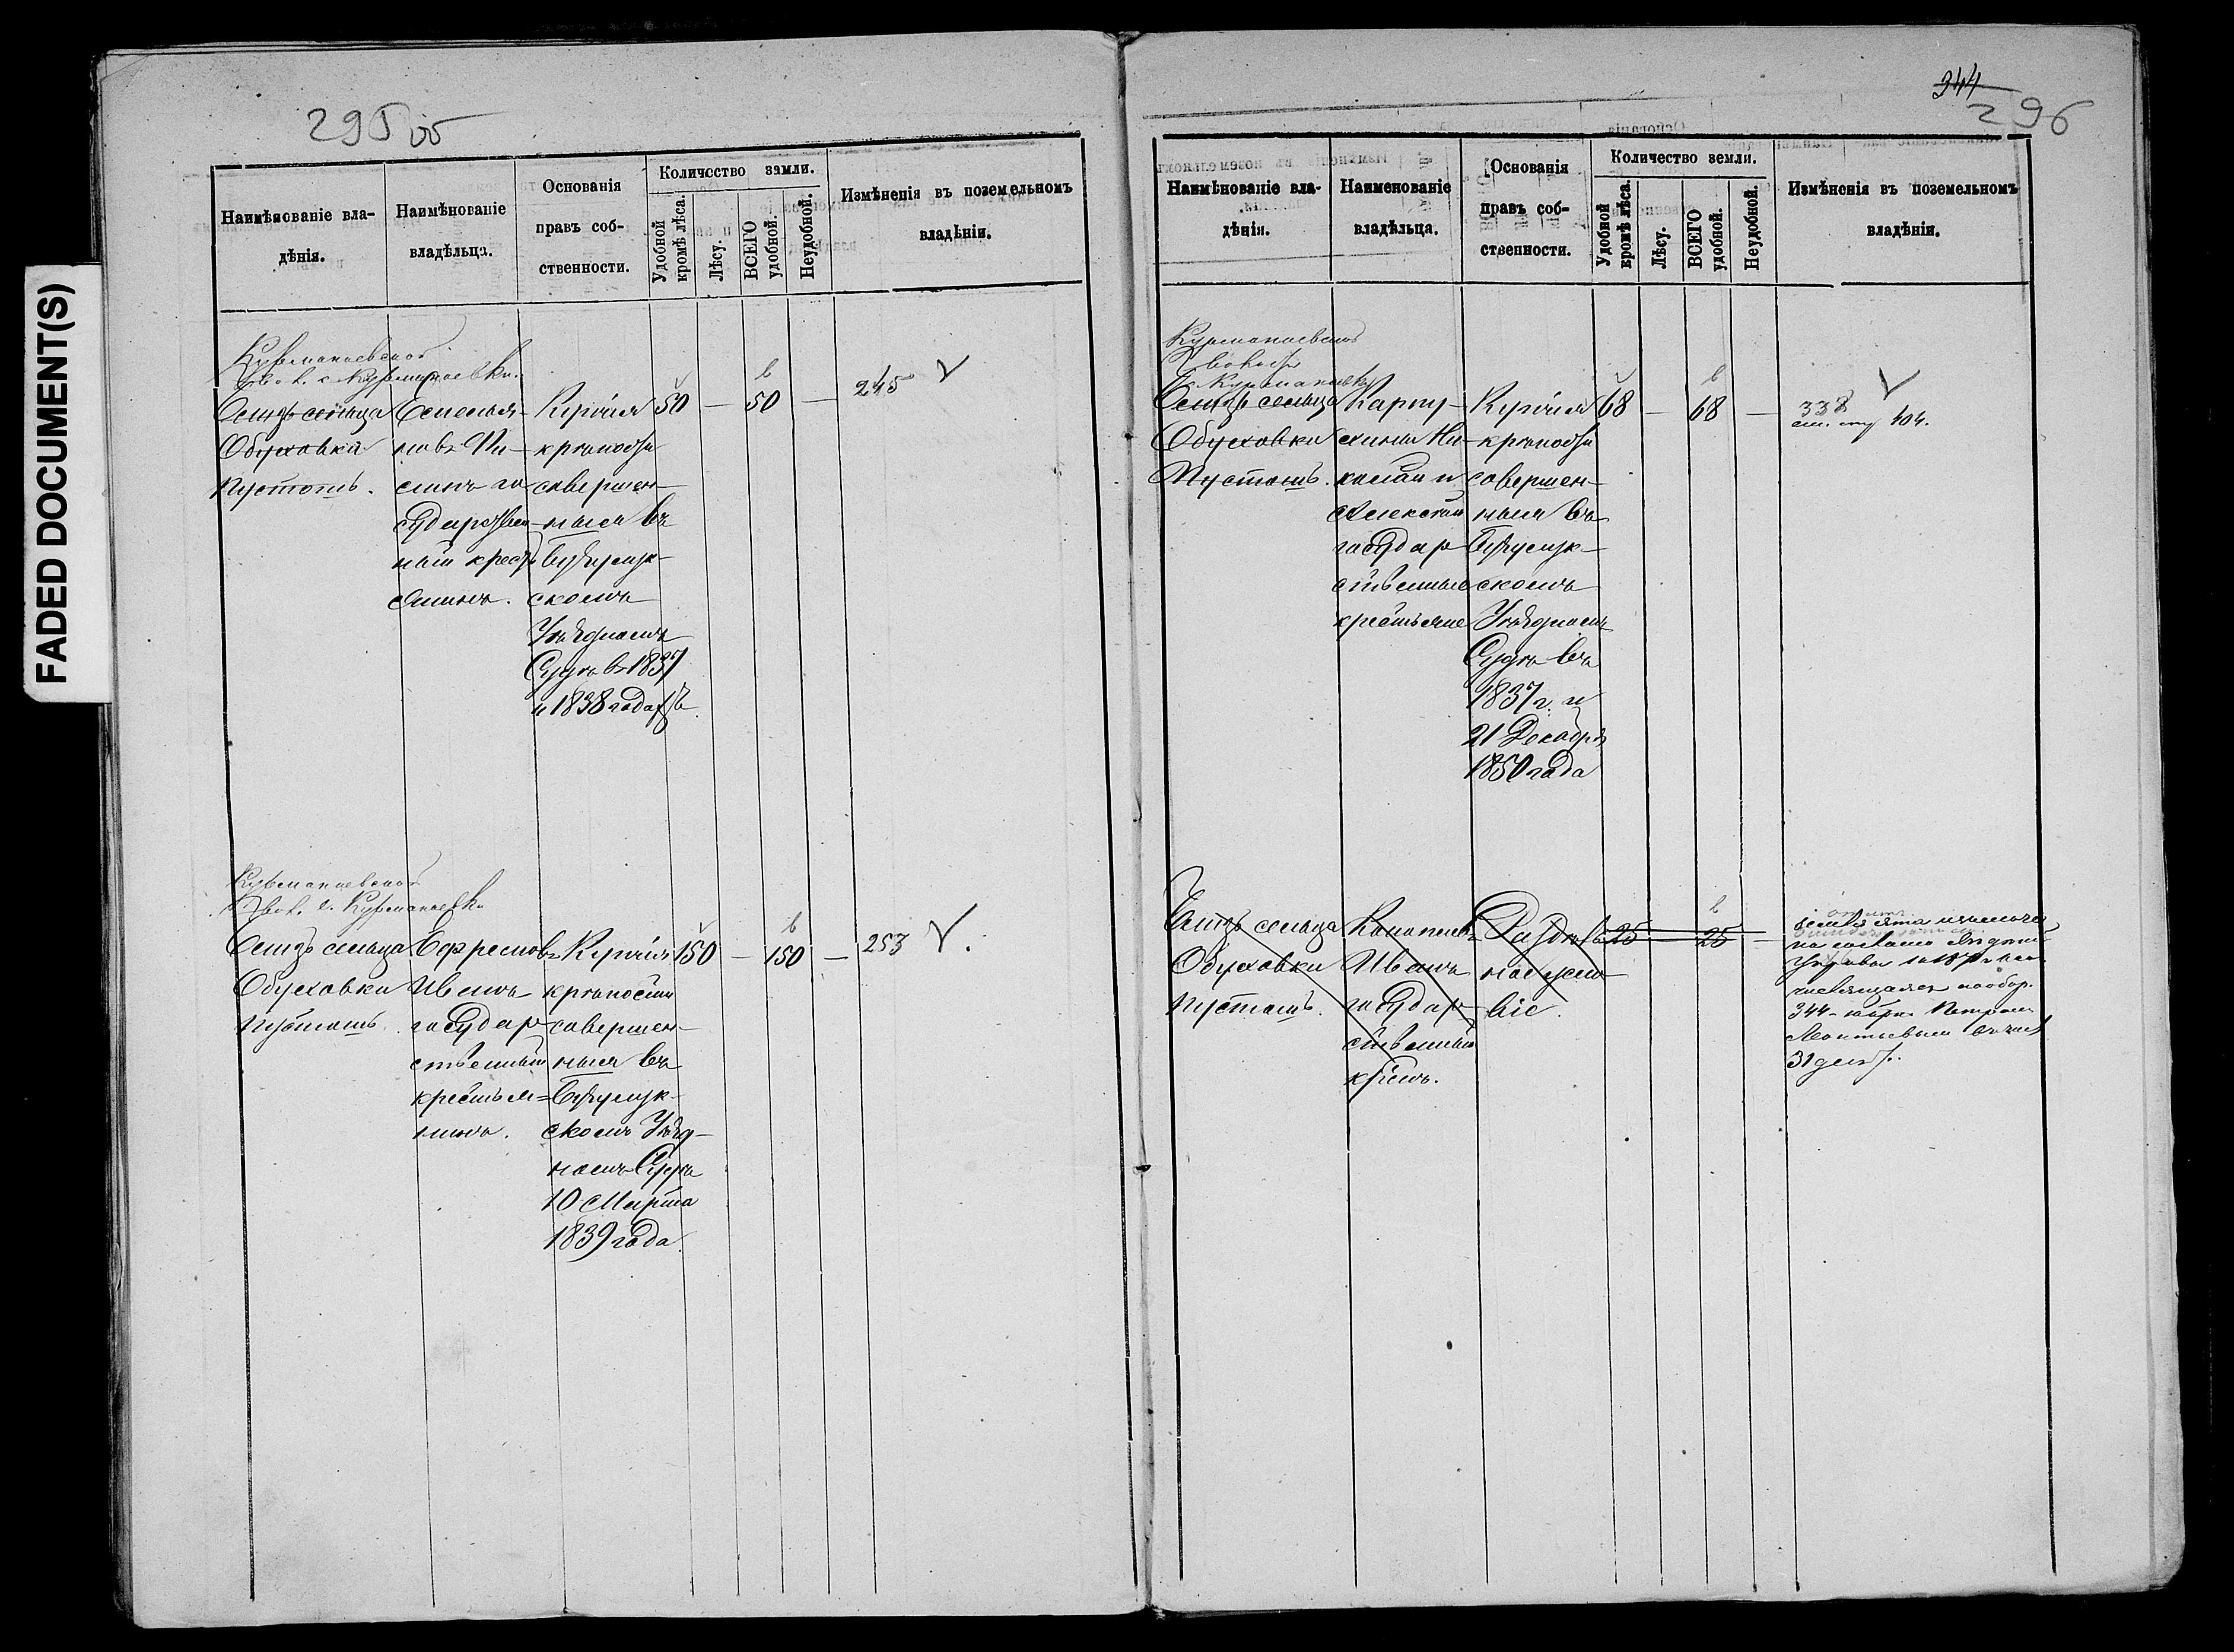 FADED DOCUMENT(S)
295 об
Наимѣнованіе вла-
дѣнія.
Наимѣнованіе
владѣльца.
Основанія
правъ соб-
ственности.
Количество земли.
Удобной
кромѣ лѣса.
Лѣсу.
ВСЕГО
удобной.
Неудобной.
Измѣненія въ поземельномъ
владѣніи.
Курманаевской
вол. с. Курманаевки.
близь сельца
Обуховки
пустошь.
сударствен
ный кресть
янинъ.
Купчія
крѣпости
совершен-
ныя въ
Бузулук-
скомъ
Уѣздномъ
Судѣ въ 1837
и 1838 годахъ
50 — 50 —
245 V
Курманаевской
вол. с. Курманаевки
близь сельца
Обуховки
пустошь.
Ефремовъ
Иванъ
государ-
ственный
крестья-
нинъ.
Купчія
крѣпости
совершен-
ныя въ
Бузулук-
скомъ Уѣзд-
номъ Судѣ
10 Марта
1839 года.
150 — 150 —
253 V.
344
296
Наимѣнованіе вла-
дѣнія.
Наименованіе
владѣльца.
Основанія
правъ соб-
ственности.
Количество земли.
Удобной
кромѣ лѣса.
Лѣсу.
ВСЕГО
удобной.
Неудобной.
Измѣненія въ поземельномъ
владѣніи.
Курманаевской
волости
с. Курманаевки
близь сельца
Обуховки
Пустошь.
Карпу-
хины Ни-
колай и
Алексѣй
государ
ственные
крестьяне
Купчія
крѣпости
совершен-
ныя въ
Бузулук-
скомъ
Уѣздномъ
Судѣ въ
1837 г. и
21 Декабря
1850 года
68 — 68 —
V
338
см. стр 404.
близь сельца
Обуховки
пустошь.
Иванъ
государ-
ственный
крест.
ное усло-
віе.
25 — 25 —
земля эта
344
31 дес.